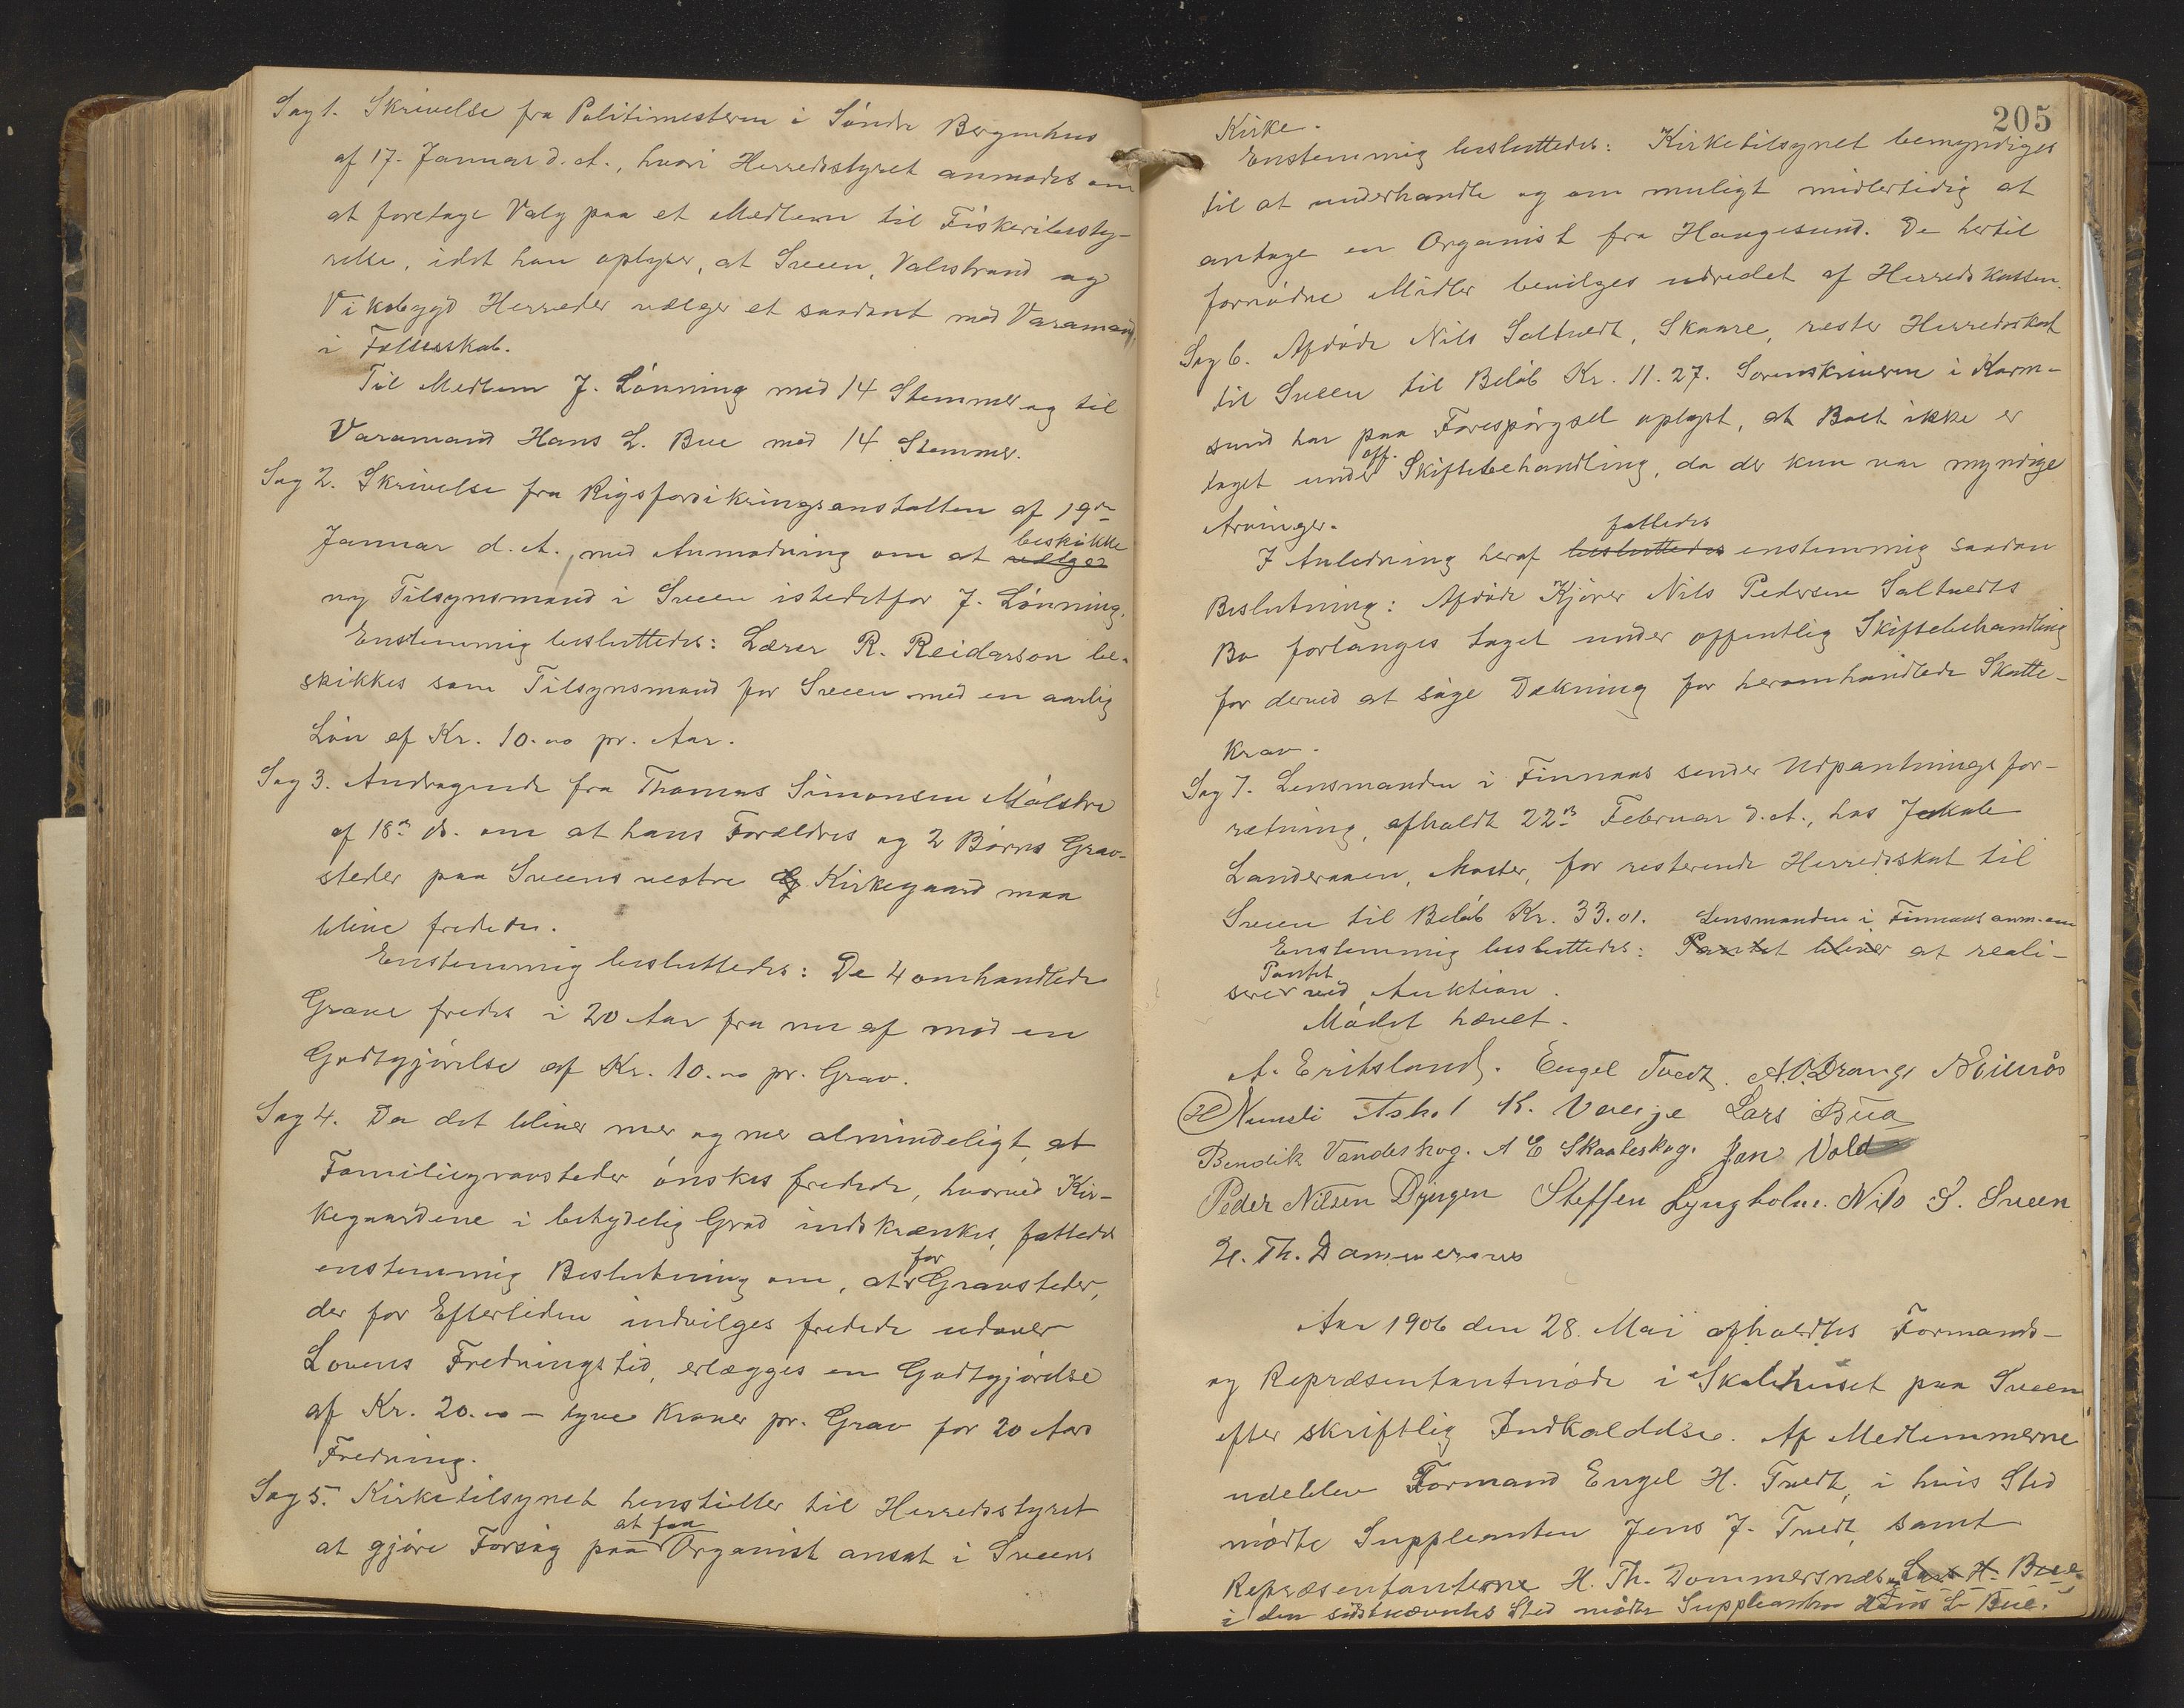 Sag 1. Skrivelse fra Politimesteren i Söndre Bergenhus
af 17. Januar d. A., hvori Herredsstyret anmodes om
at foretage Valg paa et Medlem til Fiskeribesty-
relse, idet han oplyser, at Sveen, Valestrand og
Vikebygd Herreder vælger et saadant med Varamand,
i Fællesskab.
Til Medlem J. Lönning med 14 Stemmer og til
Varamand Hans L. Bue med 14 Stemmer.
Sag 2. Skrivelse fra Rigsforsikringsanstalten af 19de
beskikke
Januar d. A., med Anmodning om at vælge
ny Tilsynsmand i Sveen istedetfor J. Lönning.
Enstemmig besluttedes: Lærer R. Reidarson be-
skikkes som Tilsynsmand for Sveen med en aarlig
Lön af Kr. 10.00 pr. Aar.
Sag 3. Andragende fra Thomas Simonsen Mölstre
af 18de ds. om at hans Forældres og 2 Börns Grav-
steder paa Sveens vestre Kirkegaard maa
blive fredede.
Enstemmig besluttedes: De 4 omhandlede
Grave fredes i 20 Aar fra nu af mod en
Godtgjörelse af Kr. 10.00 pr. Grav.
Sag 4. Da det bliver mer og mer almindeligt, at
Familiegravsteder önskes fredede, hvorved Kir-
kegaardene i betydelig Grad indskrænkes, fattedes
for
enstemmig Beslutning om, at Gravsteder,
der for Eftertiden indvilges fredede udover
Lovens Fredningstid, erlægges en Godtgjörelse
af Kr. 20.00 – tyve Kroner pr. Grav for 20 Aars
Fredning.
Sag 5. Kirketilsynet henstiller til Herredsstyret
at faa
at gjöre Forsög paa Organist ansat i Sveens
205
Kirke.
Enstemmig besluttedes: Kirketilsynet bemyndiges
til at underhandle og om muligt midlertidig at
antage en Organist fra Haugesund. De hertil
fornödne Midler bevilges udredet af Herredskassen.
Sag 6. Afdöde Nils Saltvedt, Skaare, rester Herredsskat
til Sveen til Belöb Kr. 11.27. Sorenskriveren i Karm-
sund har paa Forespörgsel oplyst, at Boet ikke er
off.
taget under Skiftebehandling, da der kun var myndige
Arvinger.
fattedes
I Anledning heraf besluttedes enstemmig saadan
Beslutning: Afdöde Kjörer Nils Pedersen Saltvedts
Bo forlanges taget under offentlig Skiftebehandling
for derved at söge Dækning for heromhandlede Skatte-
krav.
Sag 7. Lensmanden i Finnaas sender Udpantningsfor-
retning, afholdt 22de Februar d. A., hos Jakob
Landeraaen, Moster, for resterende Herredsskat til
Sveen til Belöb Kr. 33.01. Lensmanden i Finnaas anm. om
Enstemmig besluttedes: Pantet bliver at reali-
Pantet
serer ved Auktion.
Mödet hævet.
A. Eritsland. Engel Tvedt. A. O. Drange N Eilerås
H Numedi Askel K. Vaage Lars Bua
Bendik Vandeskog. A E Skaaleskog. Jan Vold
Peder Nilsen Djngen Steffen Lyngholm. Nils S. Sveen
H. Th. Dommersnes
Aar 1906 den 28. Mai afholdtes Formands-
og Repræsentantmöde i Skolehuset paa Sveen
efter skriftlig Indkaldelse. Af Medlemmerne
udeblev Formand Engel H. Tvedt, i hvis Sted
mödte Suppleanten Jens J. Tvedt, samt
Repræsentanterne H. Th. Dommersnes og Lars H. Bue
i den sidstnævntes Sted mödte Suppleanten Hans L. Bue.